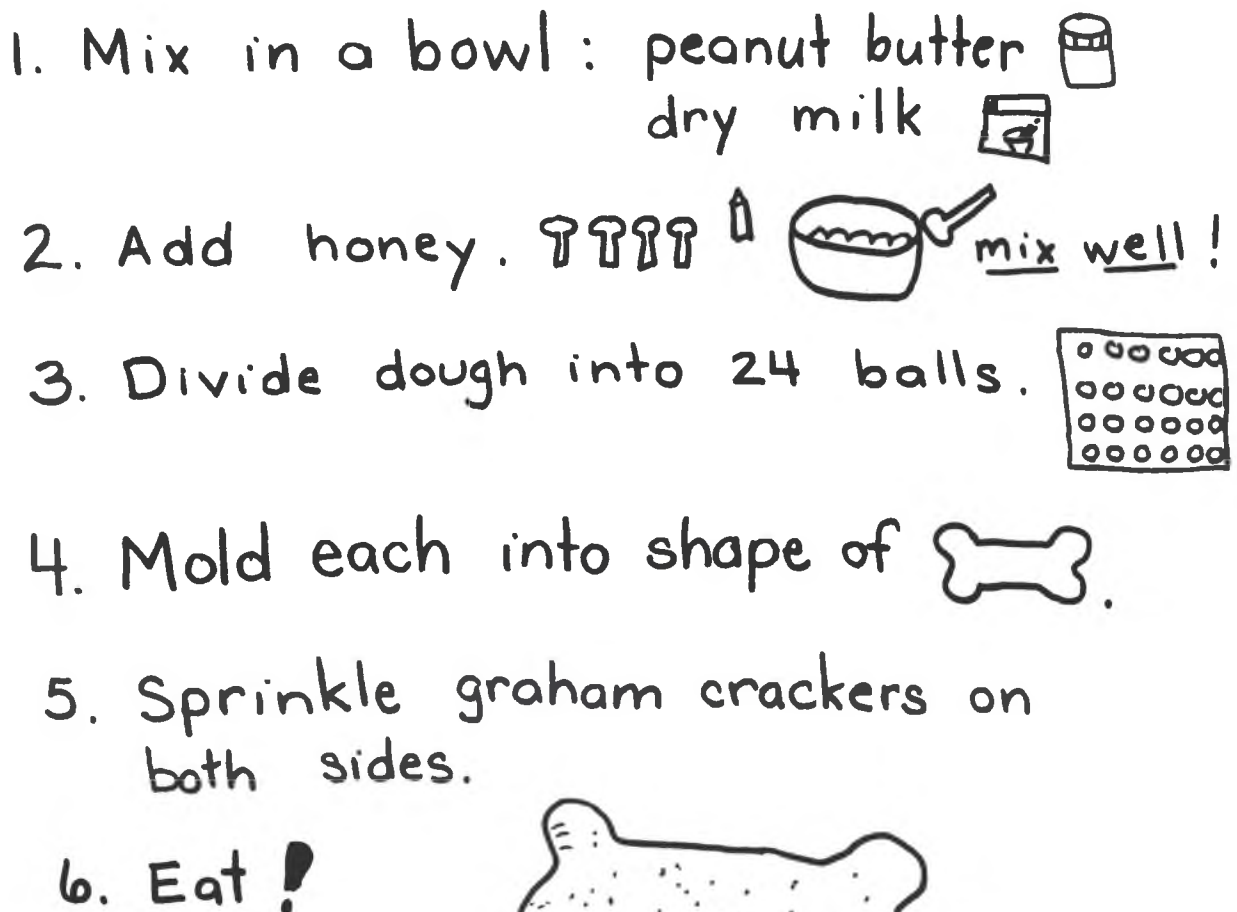 1. Mix in a bowl: peanut butter
dry milk
2. Add honey. mix well!
3. Divide dough into 24 balls.
4. Mold each into shape of .
5. Sprinkle graham crackers on
both sides.
6. Eat!